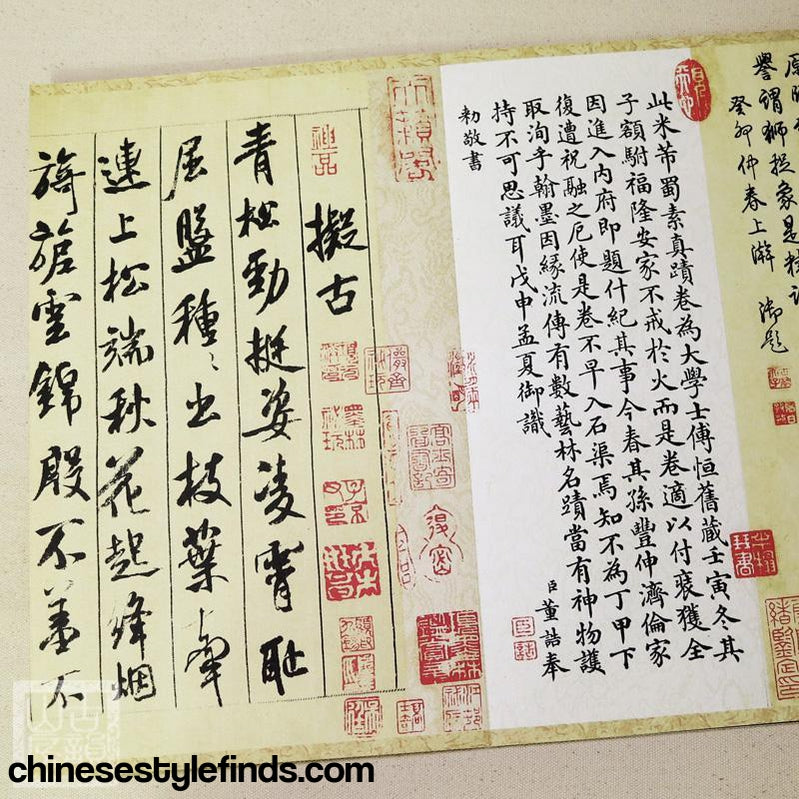 譽謂獅捉象是
癸卯仲春上澣 御題
此米芾蜀素真蹟卷為大學士傅恒舊藏壬寅冬其
子額駙福隆安家不戒於火而是卷適以付裝獲全
因進入內府即題什紀其事今春其孫豐伸濟倫家
復遭祝融之厄使是卷不早入石渠焉知不為丁甲下
取洵乎翰墨因緣流傳有數藝林名蹟當有神物護
持不可思議耳戊申孟夏御識
臣董誥奉
勅敬書
神品
擬古
青松勁挺姿凌霄恥
屈盤種〻出枝葉牽
連上松端秋花起絳烟
旖旎雲錦殷不羞不
chinesestylefinds.com